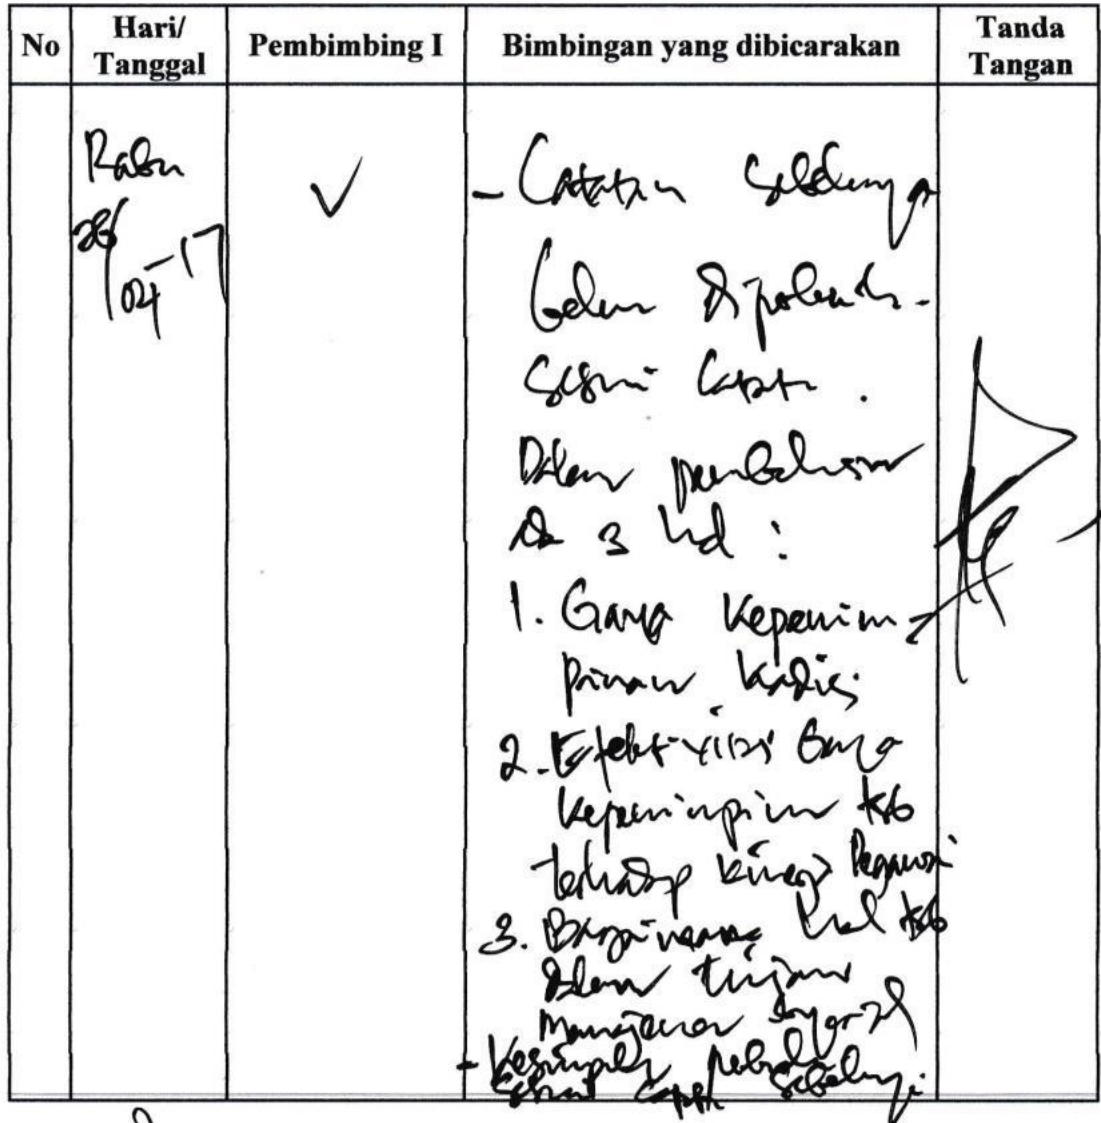 No
Hari/
Tanggal
Pembimbing I
Bimbingan yang dibicarakan
Tanda
Tangan
Rabu
26/04-17
✓
- Catatan sebelumnya
belum diperbaiki
sesuai catatan.
Dalam pembahasan
ada 3 hal :
1. Gaya Kepemim-
pinan Kadis
2. Efektivitas Gaya
kepemimpinan tsb
terhadap kinerja Pegawai
3. Bagaimana hal tsb
dalam tinjauan
manajemen syari'ah
- Kesimpulan
sesuai sebelumnya